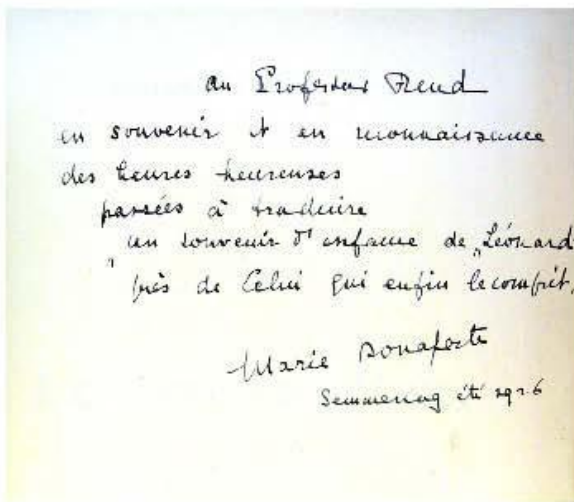 au Professeur Freud
en souvenir et en reconnaissance
des heures heureuses
passées à traduire
"un souvenir d'enfance de „Léonard"
près de Celui qui enfin le comprit,
Marie Bonaparte
Semmering été 1926